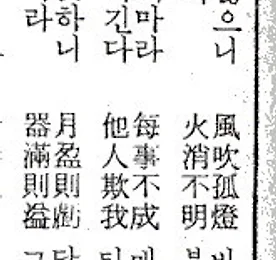 으니
風吹孤燈
火消不明
마라
每事不成
긴다
他人欺我
하니
月盈則虧
라
器滿則溢